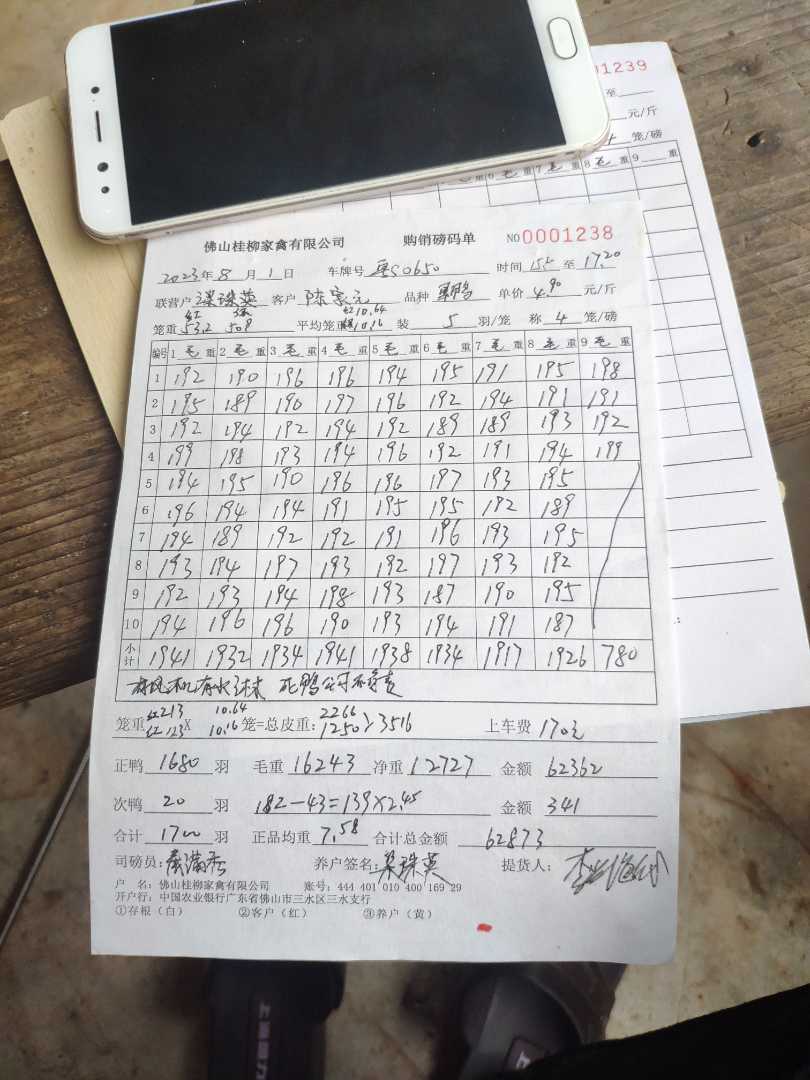 1239
至
元/斤
笼/磅
6 毛 重 7 毛 重 8 毛 重 9 重
佛山桂柳家禽有限公司 购销磅码单 NO 0001238
2023年 8 月 1 日 车牌号 粤S0650 时间 155 至 17.20
联营户 梁珠英 客户 陈宗元 品种 单价 4.90 元/斤
红 10.64
笼重 532 508 平均笼重 10.16 装 5 羽/笼 称 4 笼/磅
编号 1 毛 重 2 毛 重 3 毛 重 4 毛 重 5 毛 重 6 毛 重 7 毛 重 8 毛 重 9 毛 重
1 192 190 196 196 194 195 191 195 198
2 195 189 190 197 196 192 194 191 191
3 192 194 192 194 192 189 189 193 192
4 199 198 193 194 196 192 191 194 199
5 194 195 190 196 196 197 193 195
6 196 194 194 191 195 195 192 189
7 194 189 192 192 191 196 193 195
8 193 194 197 193 192 197 193 192
9 192 193 194 198 193 187 190 195
10 194 196 196 190 193 194 191 187
小计 1941 1932 1934 1941 1938 1934 1917 1926 780
死鸭公司不负责
笼重 红213 X 10.64 笼=总皮重: 2266 3516 上车费 170元
123 10.16 1250
正鸭 1680 羽 毛重 16243 净重 12727 金额 62362
次鸭 20 羽 182-43=139×2.45 金额 341
合计 1700 羽 正品均重 7.58 合计总金额 62873
司磅员: 养户签名: 梁珠英 提货人:
户 名: 佛山桂柳家禽有限公司 账号: 444 401 010 400 169 29
开户行: 中国农业银行广东省佛山市三水区三水支行
①存根(白) ②客户(红) ③养户(黄)